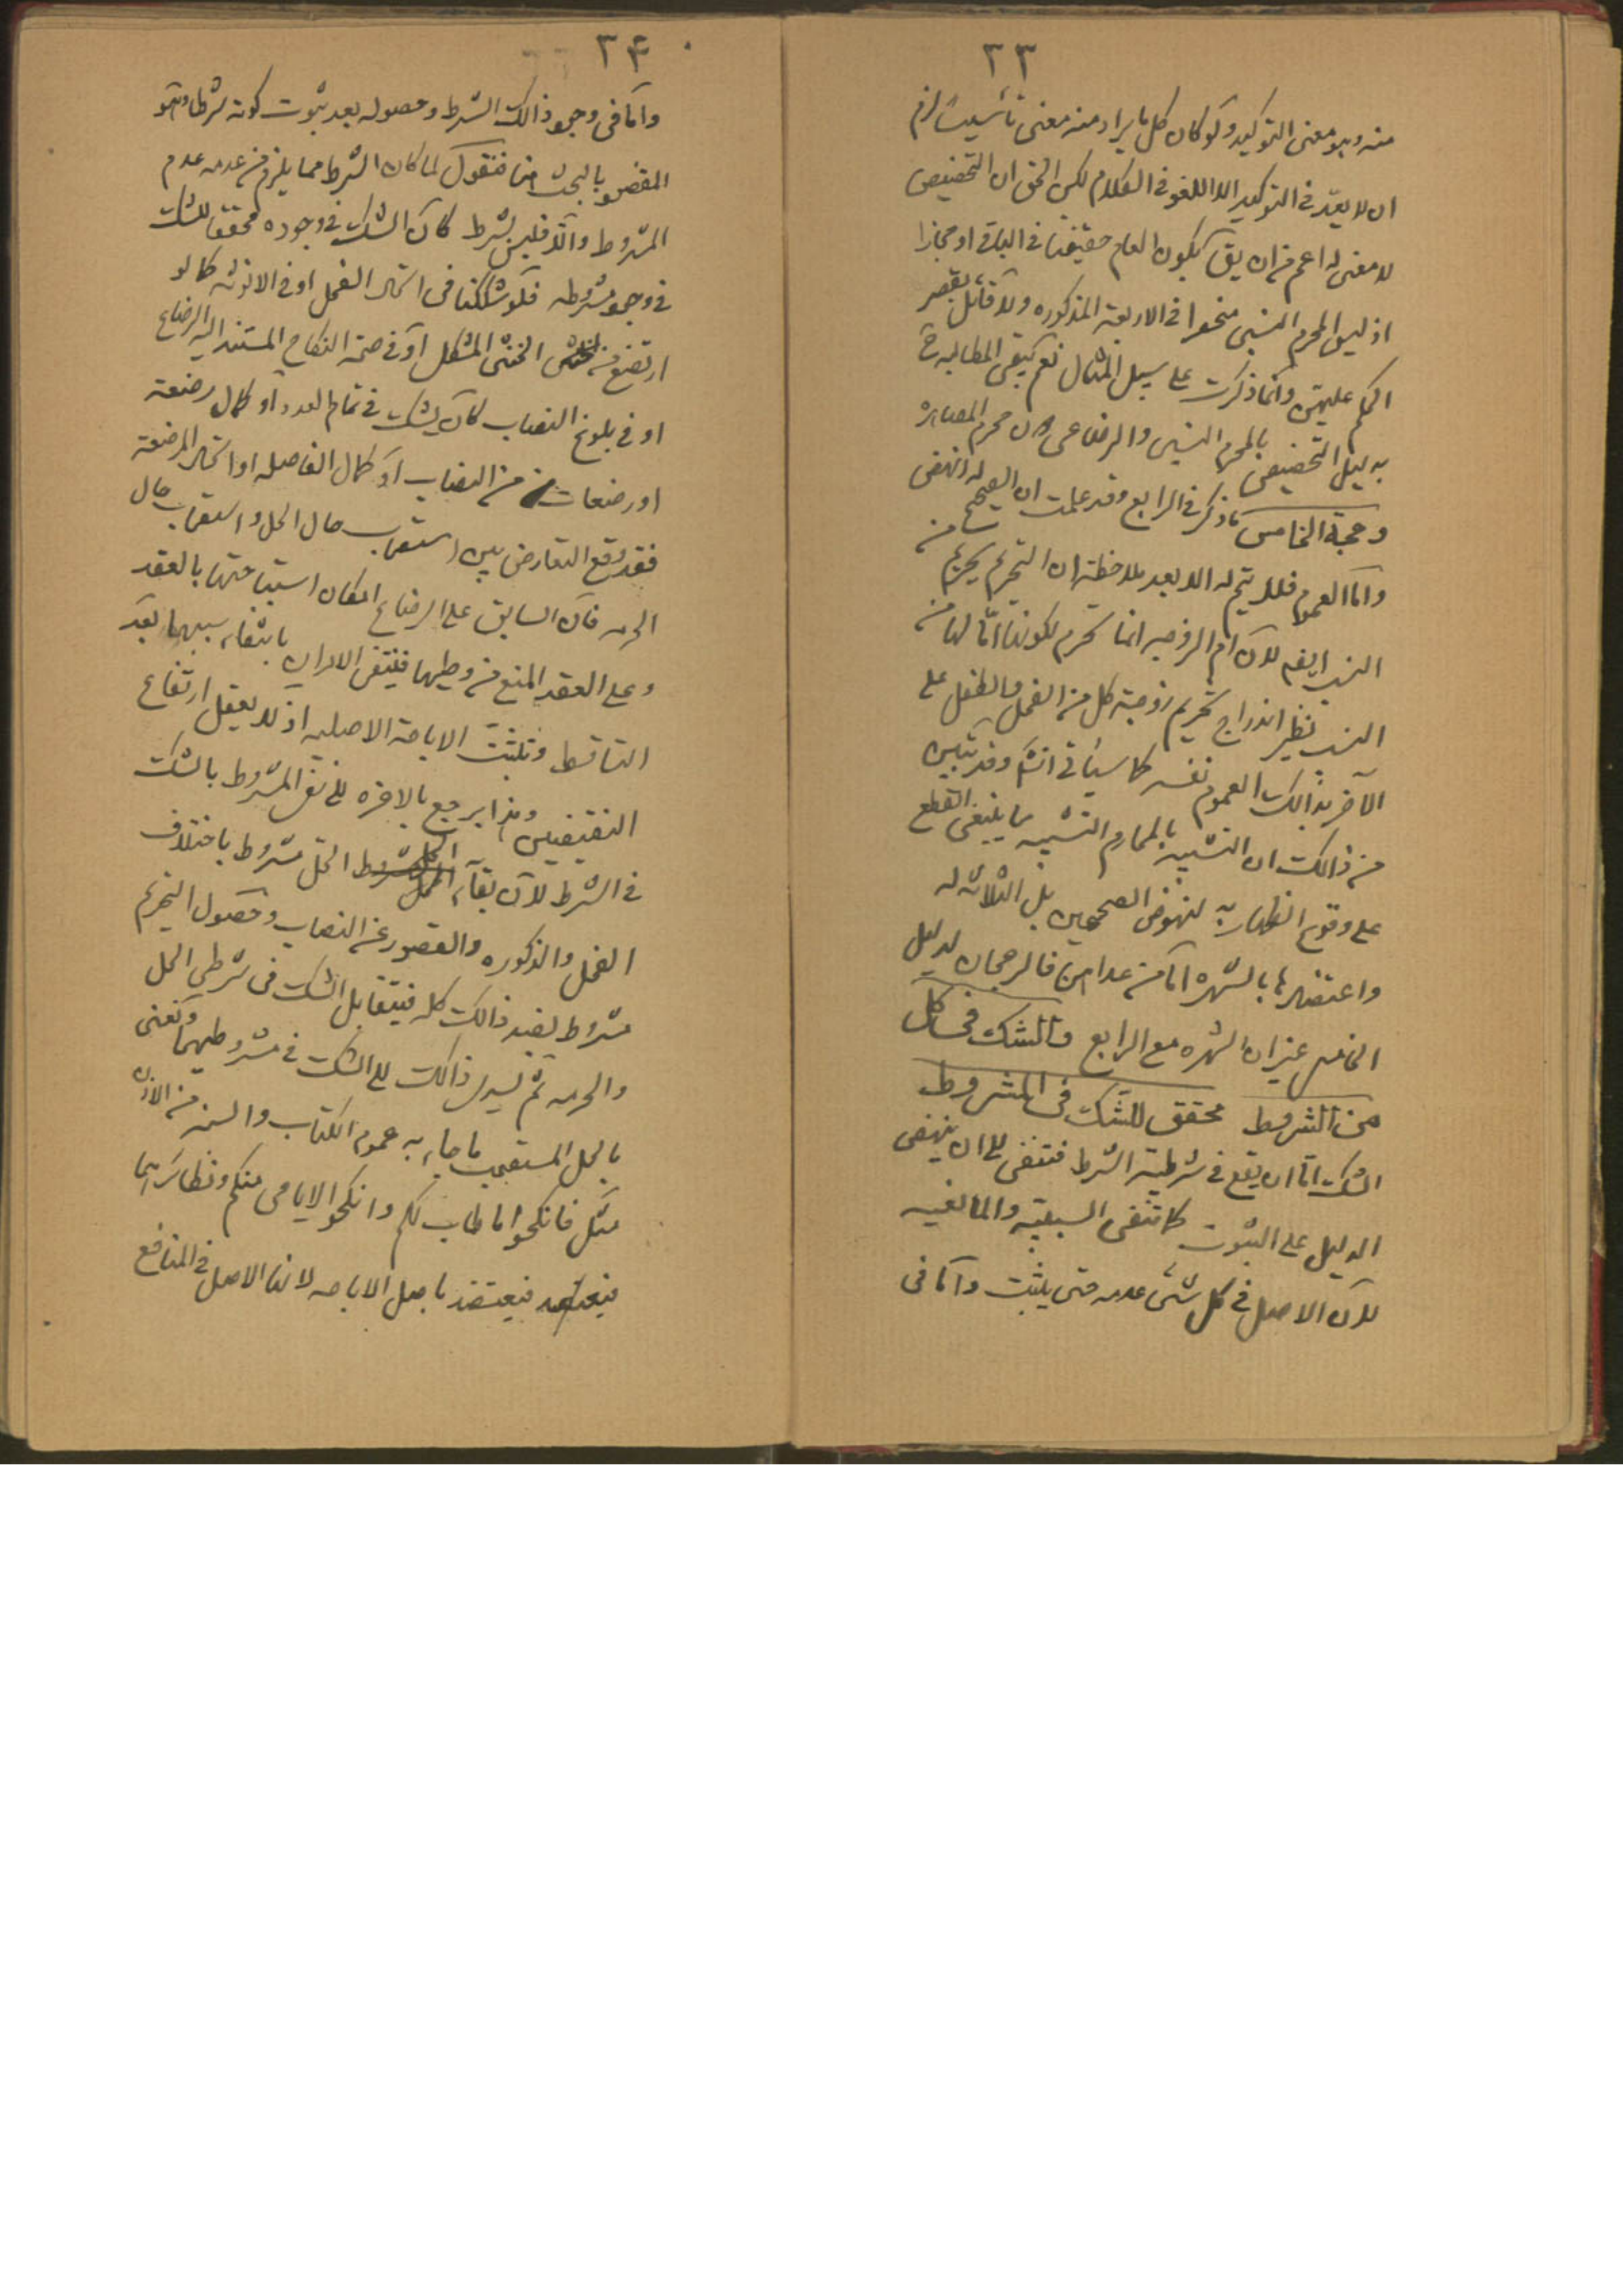 ٣٣
منه وهو معنى التوكيد ولو كان كل ما يراد منه معنى تأسيسا لزم
ان لا يعد في التوكيد الا اللغو في الكلام لكن الحق ان التخصيص
لا معنى له اعم من ان يق بكون العام حقيقتا في الباقي او مجازا
اذ ليس المحرم النسبى منحصرا في الاربعة المذكوره ولا قائل بقصر
الحكم عليهن وانما ذكرت على سبيل المثال نعم تبقى المطالبه ح
بدليل التخصيص بالمحرم النسبى والرضاعى دون محرم المصاهره
وحجة الخامس ما ذكر في الرابع وقد علمت ان الصحيح له انهض
واما العموم فلا يتم له الا بعد ملاحظة ان التحريم يحرم من
النسب ايضه لان ام الزوجه انما تحرم لكونها اما لها من
النسب نظير اندراج تحريم زوجية كل من الفحل والطفل على
الآخر بذالك العموم نفسه كما سيأتى انشا وقد تبين
من ذالك ان التشبيه بالمحارم النسبيه ما ينبغى القطع
على وقوع الظهار به لنهوض الصحيحين بل الثلاثه له
واعتضادها بالشهره اما من عداهن فالرجحان لدليل
الخامس غير ان الشهره مع الرابع والشك في كل
من الشروط محقق للشك في المشروط
الشك اما ان يقع في شرطية الشرط فتنفى الى ان ينهض
الدليل على الثبوت كما تنفى السببية والمانعيه
لان الاصل في كل شئ عدمه حتى يثبت واما في
٣۴
واما في وجود ذالك الشرط وحصوله بعد ثبوت كونه شرطا وهو
المقصود بالبحث هنا فنقول لما كان الشرط مما يلزم من عدمه عدم
المشروط والا فليس بشرط كان الشك في وجوده محقق للشك
في وجود مشروطه فلو شككنا في اتحاد الفحل او في الانوثه كما لو
ارتضع من الخنثى المشكل او في صحة النكاح المستند اليه الرضاع
او في بلوغ النصاب كان يشك في تمام العدد او كمال رضعة
او رضعات من النصاب او كمال الفاصله او اتحاد المرضعة
فقد وقع التعارض بين استصحاب حال الحل واستصحاب حال
الحرمه فان السابق على الرضاع امكان استباحتها بالعقد
وعلى العقد المنع من وطيها فينتفى الامران بانتفاء سببهما بعد
التساقط وتلبثت الاباحة الاصليه اذ لا يعقل ارتفاع
النقيضين وهذا يرجع بالاخره الى نفى المشروط بالشك
في الشرط لان بقاء الحل مشروط باختلاف
الفحل والذكوره والقصور عن النصاب وحصول التحريم
مشروط بضد ذالك كله فيتقابل الشك في شرطى الحل
والحرمه ثم يسرى ذالك الى الشك في مشروطيهما ونعنى
بالحل المستصحب ما جاء به عموم الكتاب والسنه من الاذن
مثل فانكحوا ما طاب لكم وانكحوا الايامى منكم ونظائرهما
فيعتضد باصل الاباحه لانها الاصل في المنافع